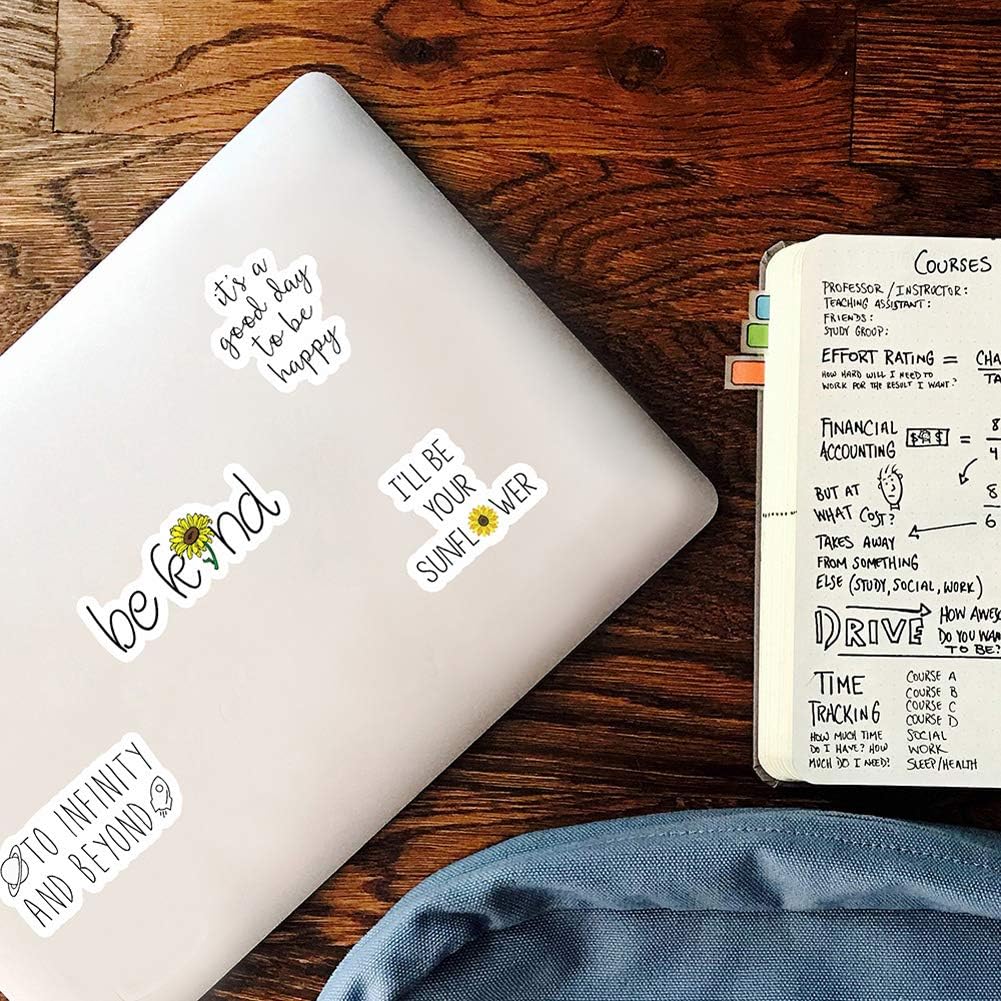 it's a
good day
to be
happy
I'LL BE
YOUR
SUNFLOWER
be kind
TO INFINITY
AND BEYOND
COURSES
PROFESSOR / INSTRUCTOR:
TEACHING ASSISTANT:
FRIENDS:
STUDY GROUP:
EFFORT RATING = CHA
HOW HARD WILL I NEED TO TA
WORK FOR THE RESULT I WANT?
FINANCIAL 8
ACCOUNTING $ $ = 4
BUT AT 8
WHAT COST? 6
TAKES AWAY
FROM SOMETHING
ELSE (STUDY, SOCIAL, WORK)
DRIVE HOW AWES
DO YOU WAN
TO BE?
TIME
TRACKING
HOW MUCH TIME
DO I HAVE? HOW
MUCH DO I NEED?
COURSE A
COURSE B
COURSE C
COURSE D
SOCIAL
WORK
SLEEP/HEALTH